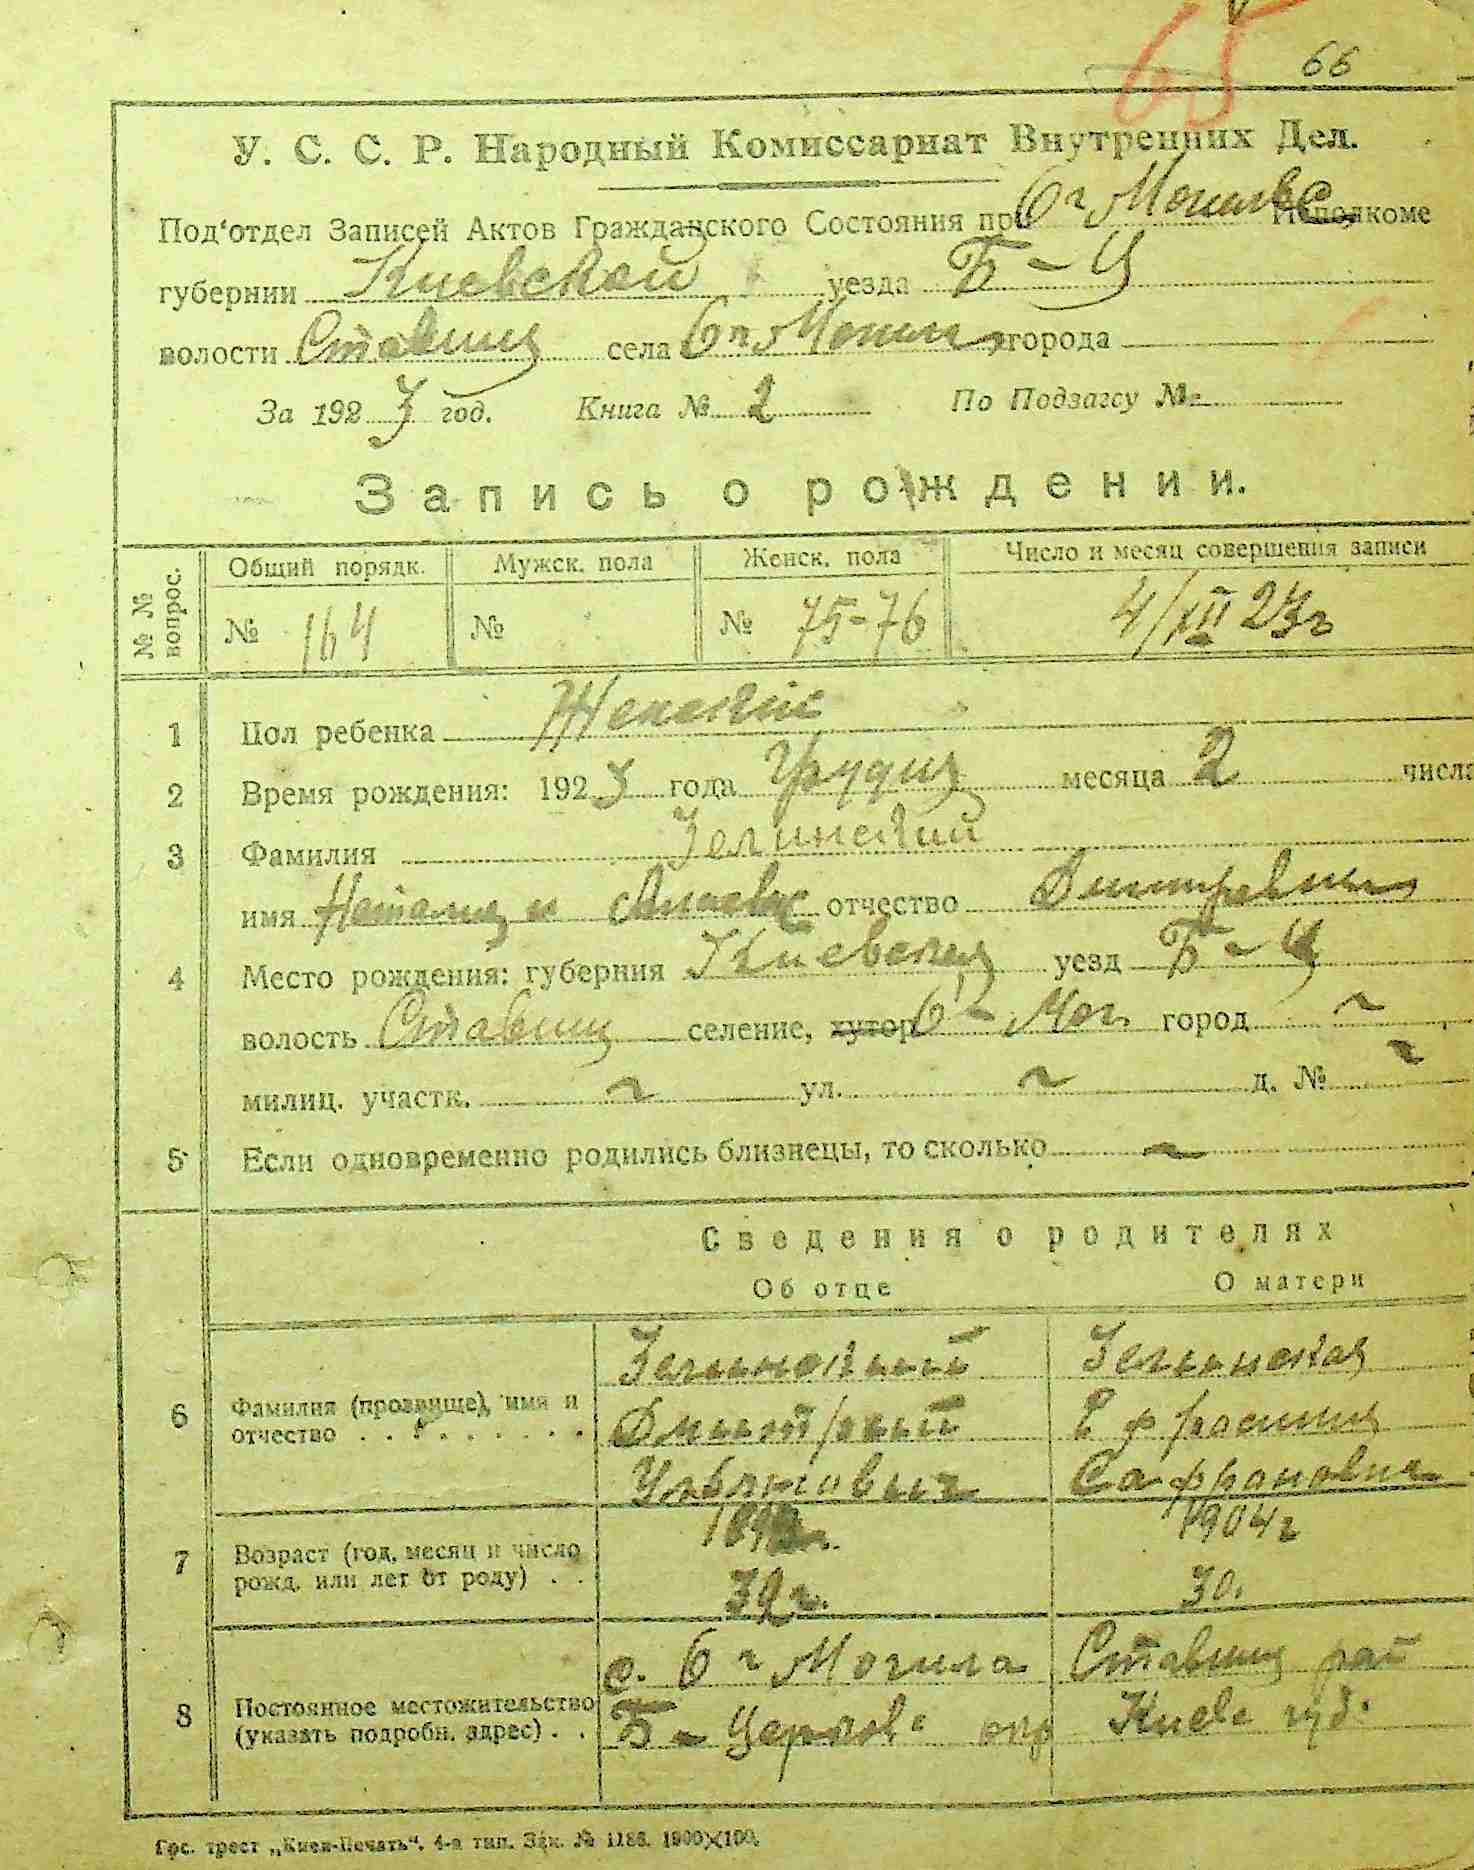 65
66
У. С. С. Р. Народный Комиссариат Внутренних Дел.
Под‘отдел Записей Актов Гражданского Состояния при Исполкоме
губернии Киевской уезда Б-Ц
волости Ставищ села города
За 1923 год. Книга № 2 По Подзагсу №
Запись о рождении.
№ № вопрос.
Общий порядк. Мужск. пола Женск. пола Число и месяц совершения записи
№ 164 № № 75-76 4/XII 23г
1 Пол ребенка Женский
2 Время рождения: 1923 года Грудня месяца 2 числа
3 Фамилия Зелинский
имя Наталия и отчество
4 Место рождения: губерния Киевская уезд Б-Ц
волость Ставищ селение, хутор Мог. город ~
милиц. участк. ~ ул. ~ д. № ~
5 Если одновременно родились близнецы, то сколько ~
Сведения о родителях
Об отце О матери
6 Фамилия (прозвище), имя и отчество Зелинский Зелинская
Дмитрий Ефросиния
Сафроновна
7 Возраст (год, месяц и число рожд. или лет от роду) 1904г
32г. 30.
8 Постоянное местожительство (указать подробн. адрес) с. Могила Ставищ рай
Б-Церков. окр Киев. губ.
Гос. трест „Киев-Печать“. 4-а тип. Зак. № 1186. 1900×100.